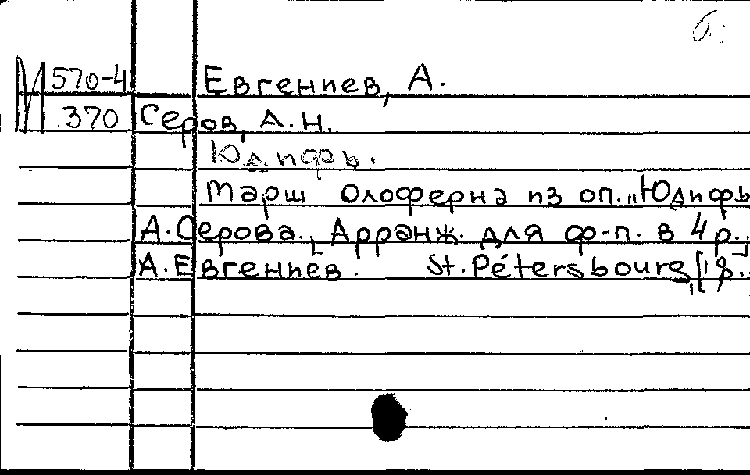 М 570-4 Евгениев, А.
370 Серов, А.Н.
Юдифь.
Марш Олоферна из оп. „Юдифь
А.Серова. Арранж. для ф-п. в 4 р.
А.Евгениев. St.Pétersbourg,